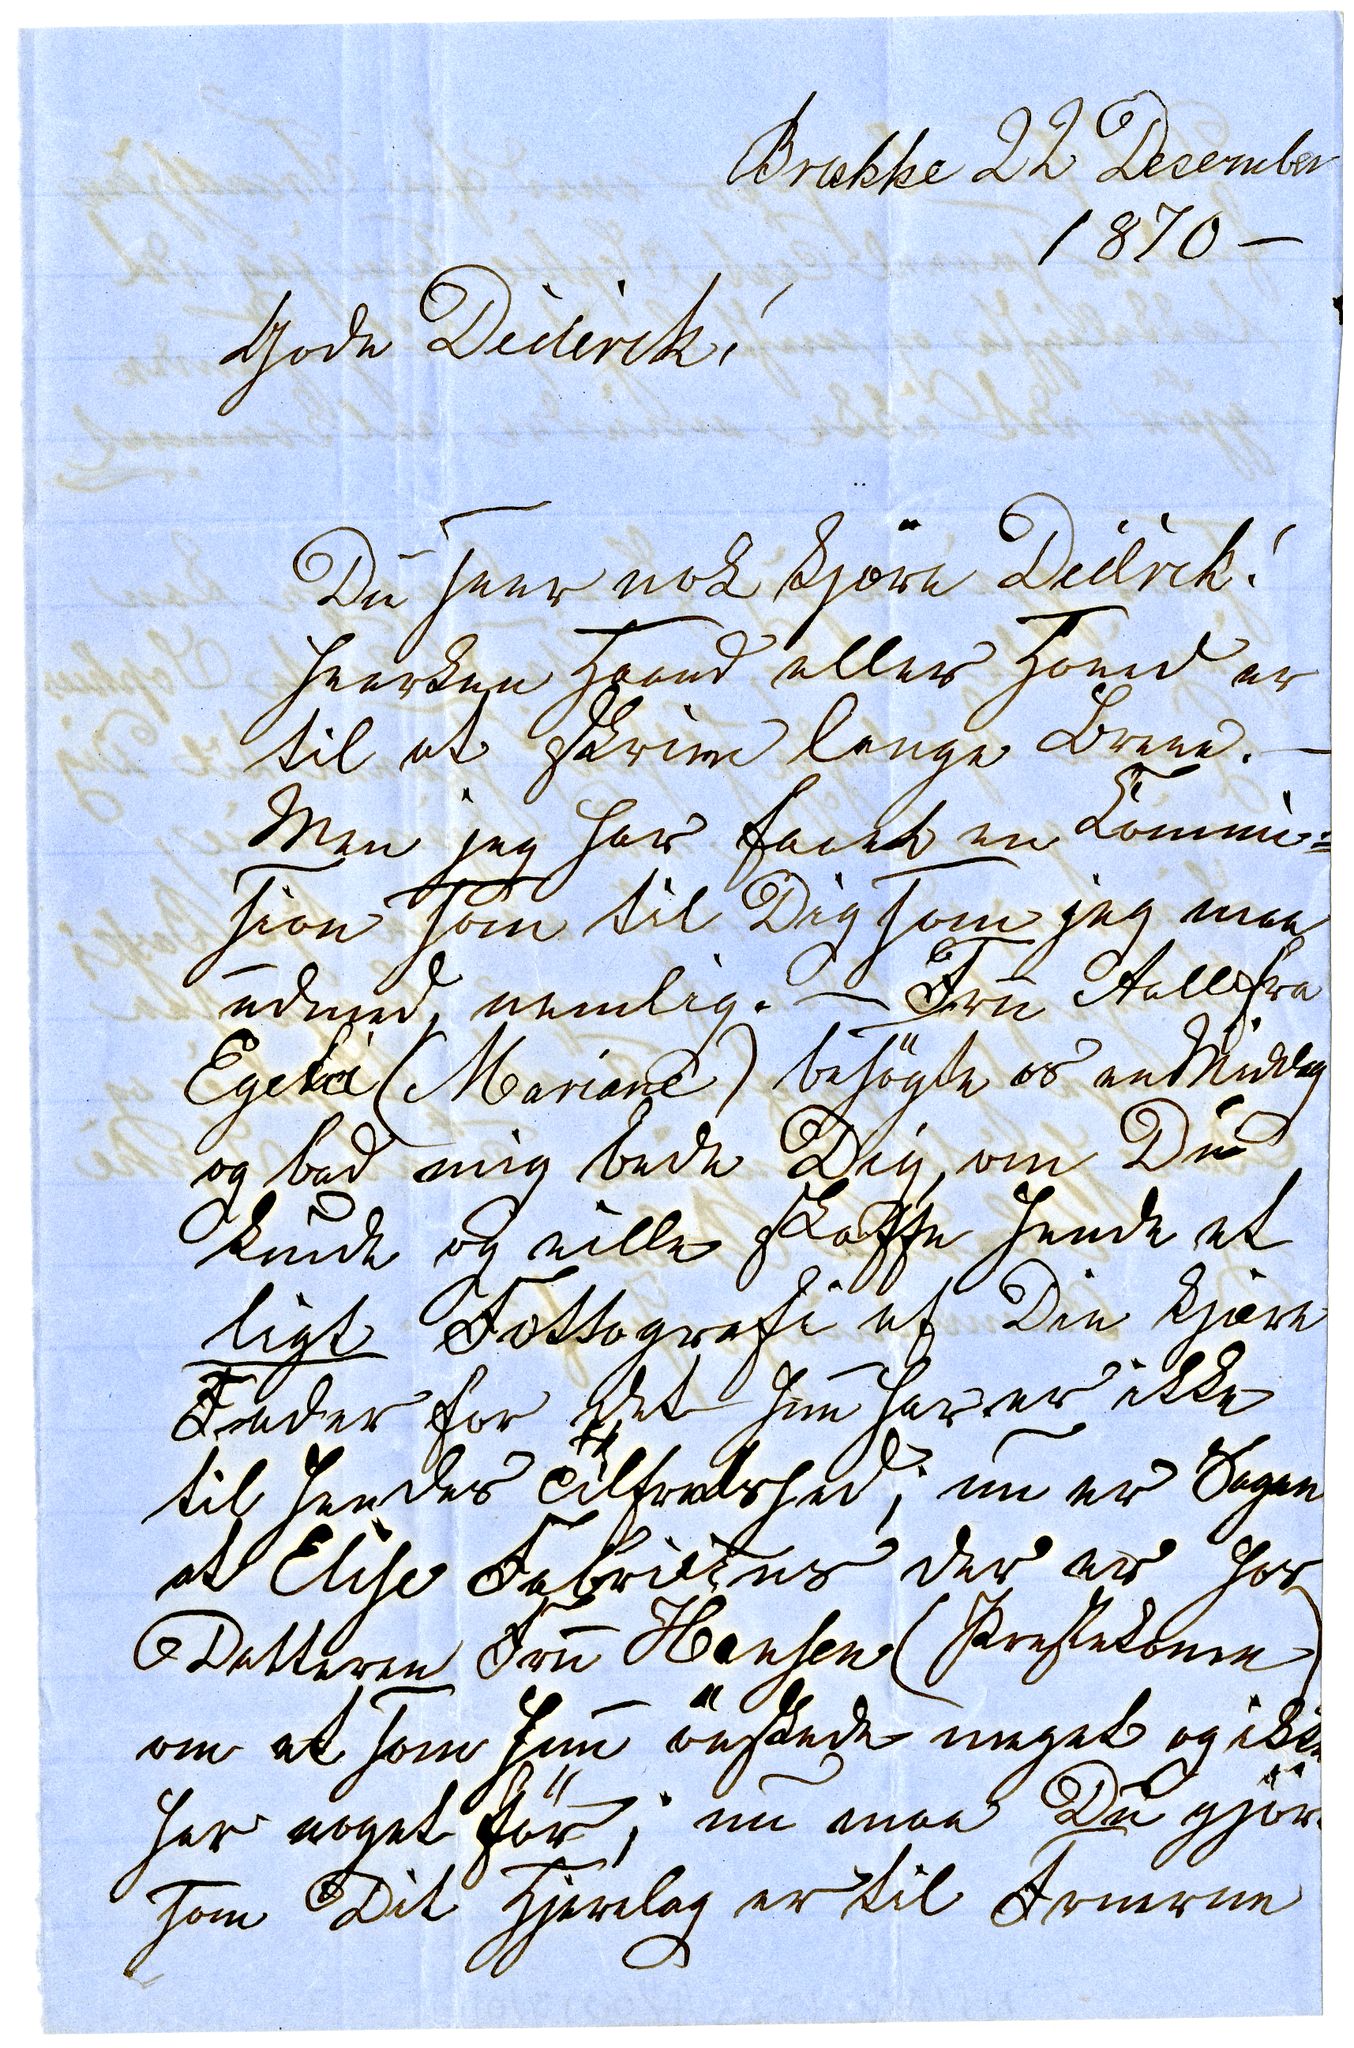 Brække 22 Desember
1870 –
Gode Diderek!
Du seer nok kjære Didrek!
hværken Haand eller Hoved er
til at skrive lange Breve. –
Men jeg har faaet en Commi-
sion som til Dig som jeg maa
ud med, nemlig. – Fru Aall fra
Egelie (Mariane) besögte os en Middag
og bad mig bede Dig, om Du
kunde og ville skaffe hende et
ligt Fottografi af Din kjære
Fader for det hun har er ikke
til hendes Tilfredshed; nu er Sagen
at Elise Fabricius der er hos
Datteren Fru Hansen (Prestekonen)
om et som hun önskede meget og ikke
har noget för; nu maa Du gjör
som Dit Hjertelag er til Fruerne